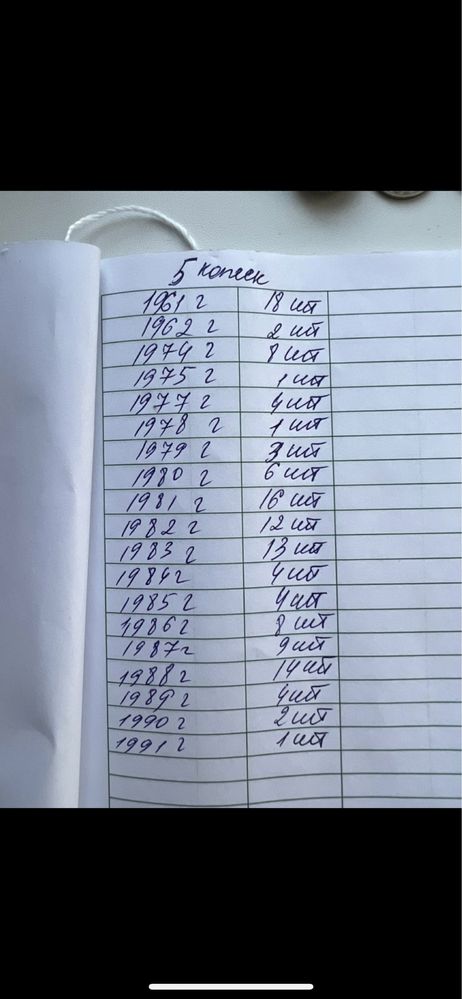 5 копеек
1961 г 18 шт
1962 г 2 шт
1974 г 8 шт
1975 г 1 шт
1977 г 4 шт
1978 г 1 шт
1979 г 3 шт
1980 г 6 шт
1981 г 16 шт
1982 г 12 шт
1983 г 13 шт
1984 г 4 шт
1985 г 4 шт
1986 г 8 шт
1987 г 9 шт
1988 г 14 шт
1989 г 4 шт
1990 г 2 шт
1991 г 1 шт